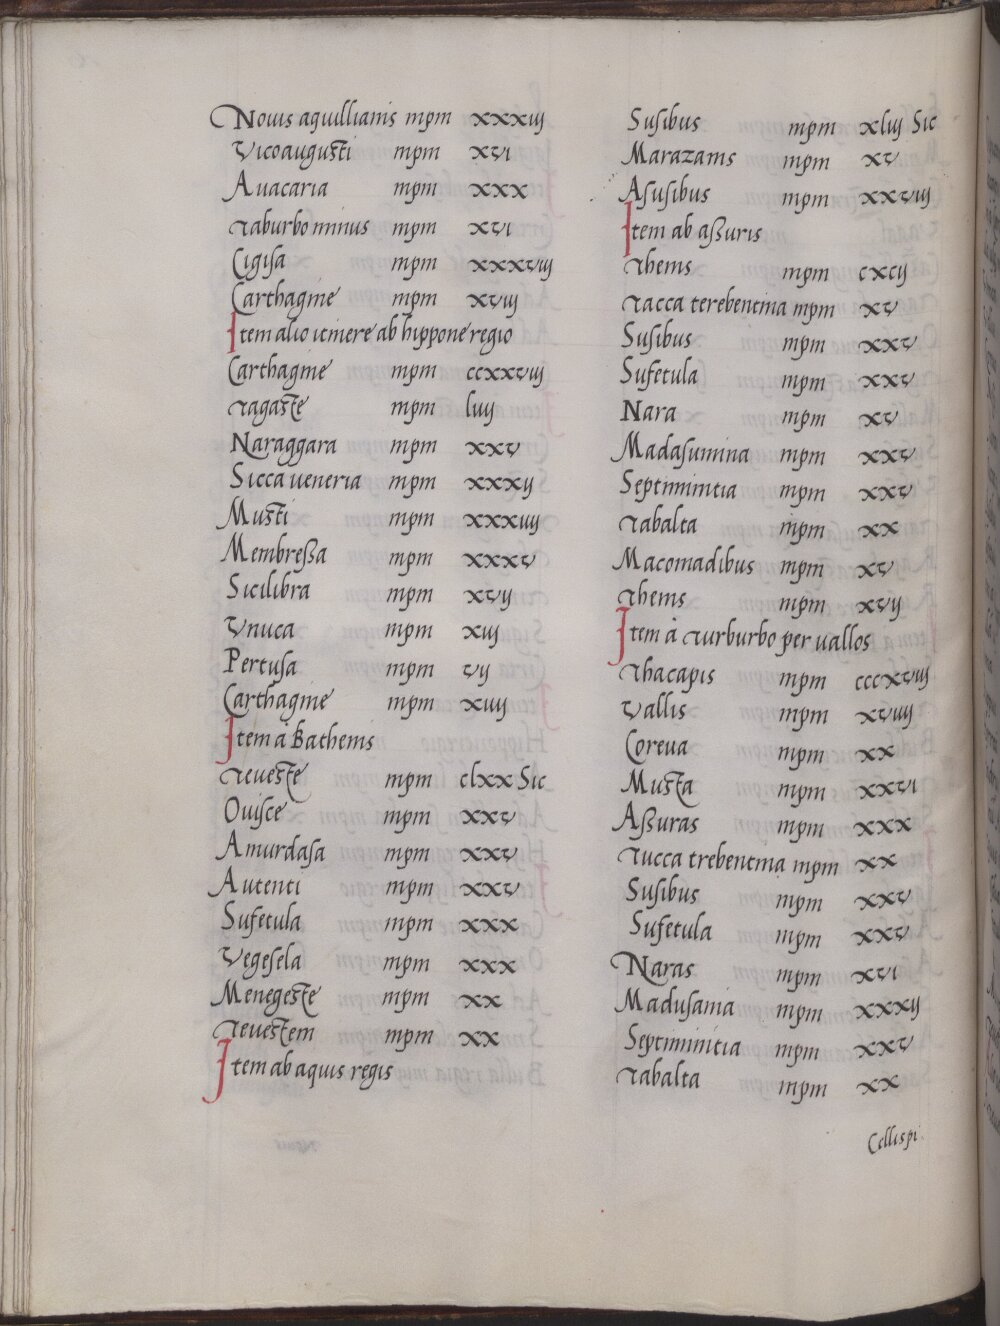 Nouis aquilianis mpm xxxiij
Vicoaugusti mpm xvi
Auacaria mpm xxx
Taburbo minus mpm xvi
Cigisa mpm xxxviij
Carthagine mpm xviij
Item alio itinere ab hippone regio
Carthagine mpm ccxxviij
Tagaste mpm liiij
Naraggara mpm xxv
Sicca ueneria mpm xxxij
Musti mpm xxxiiij
Membressa mpm xxxv
Sicilibra mpm xvij
Vnuca mpm xiij
Pertusa mpm vij
Carthagine mpm xiiij
Item a Bathenis
Teueste mpm clxx Sic
Ouisce mpm xxv
Amurdasa mpm xxv
Autenti mpm xxv
Sufetula mpm xxx
Vegesela mpm xxx
Menegeste mpm xx
Teuestem mpm xx
Item ab aquis regis
Susibus mpm xliij Sic
Marazanis mpm xv
Asusibus mpm xxviij
Item ab assuris
Thenis mpm cxcij
Tacca terebentina mpm xv
Susibus mpm xxv
Sufetula mpm xxv
Nara mpm xv
Madasumina mpm xxv
Septiminitia mpm xxv
Tabalta mpm xx
Macomadibus mpm xv
Thenis mpm xvij
Item à Turburbo per uallos
Thacapis mpm cccxviij
Vallis mpm xviiij
Coreua mpm xx
Musta mpm xxvi
Assuras mpm xxx
Tucca trebentina mpm xx
Susibus mpm xxv
Sufetula mpm xxv
Naras mpm xvi
Madusania mpm xxxij
Septiminitia mpm xxv
Tabalta mpm xx
Cellis pi